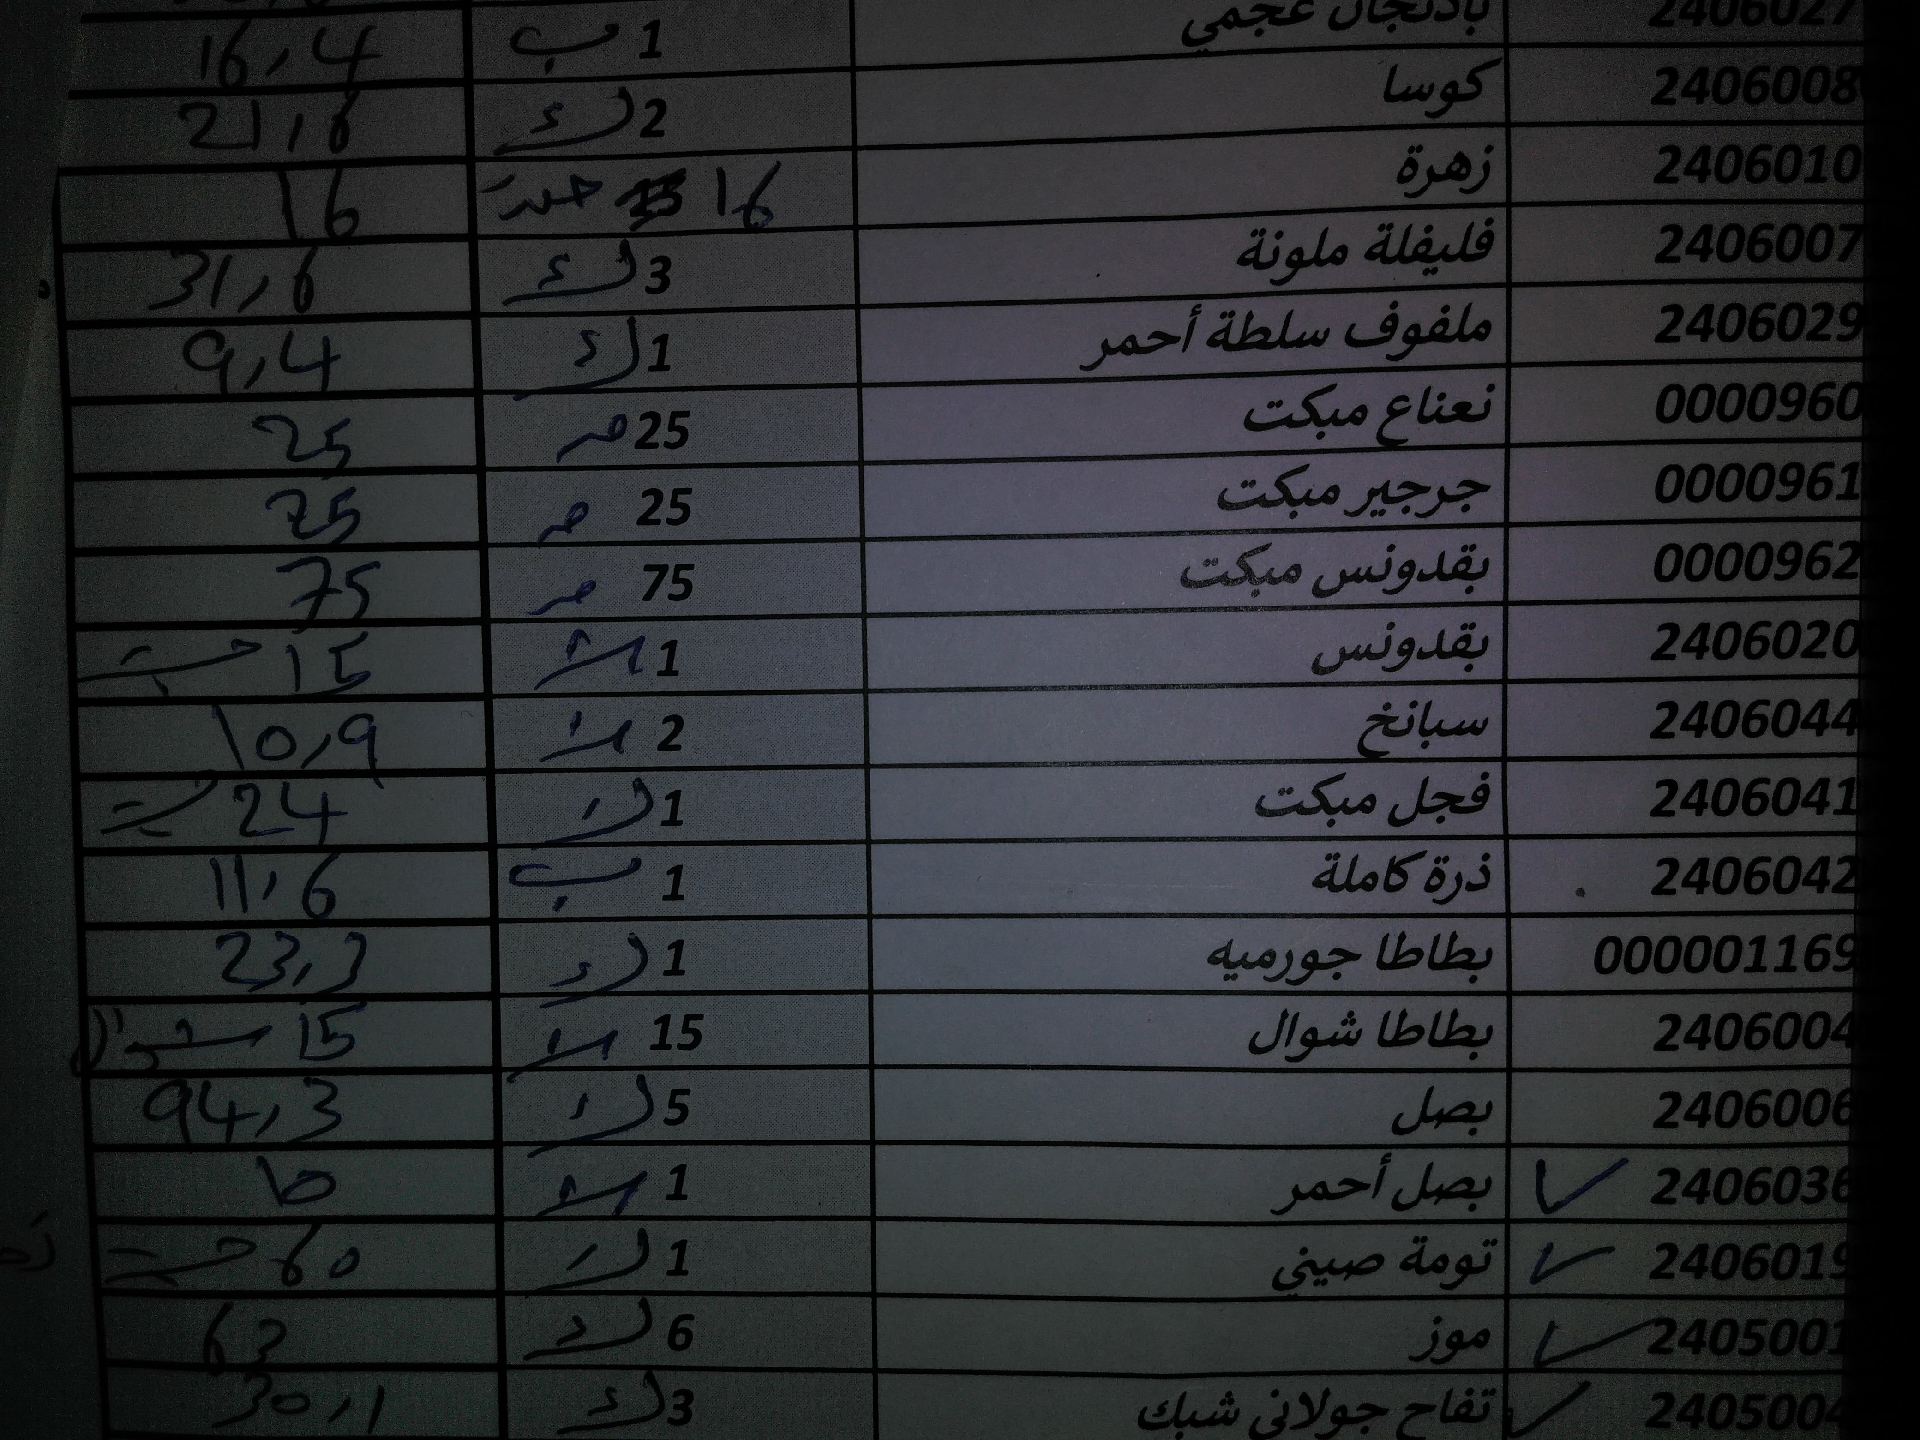 2406027 باذنجان عجمي 1 ب 16,4
2406008 كوسا 2 ك 21,6
2406010 زهرة 16 حبة 16
2406007 فليفلة ملونة 3 ك 31,6
2406029 ملفوف سلطة أحمر 1 ك 9,4
0000960 نعناع مبكت 25 25
0000961 جرجير مبكت 25 25
0000962 بقدونس مبكت 75 75
2406020 بقدونس 1 15
2406044 سبانخ 2 10,9
2406041 فجل مبكت 1 ك 24
2406042 ذرة كاملة 1 ب 11,6
000001169 بطاطا جورميه 1 ك 23,3
2406004 بطاطا شوال 15 15 شوال
2406006 بصل 5 ك 94,3
2406036 بصل أحمر 1 10
2406019 تومة صيني 1 ك 60
2405001 موز 6 ك 63
2405004 تفاح جولاني شبك 3 ك 30,1